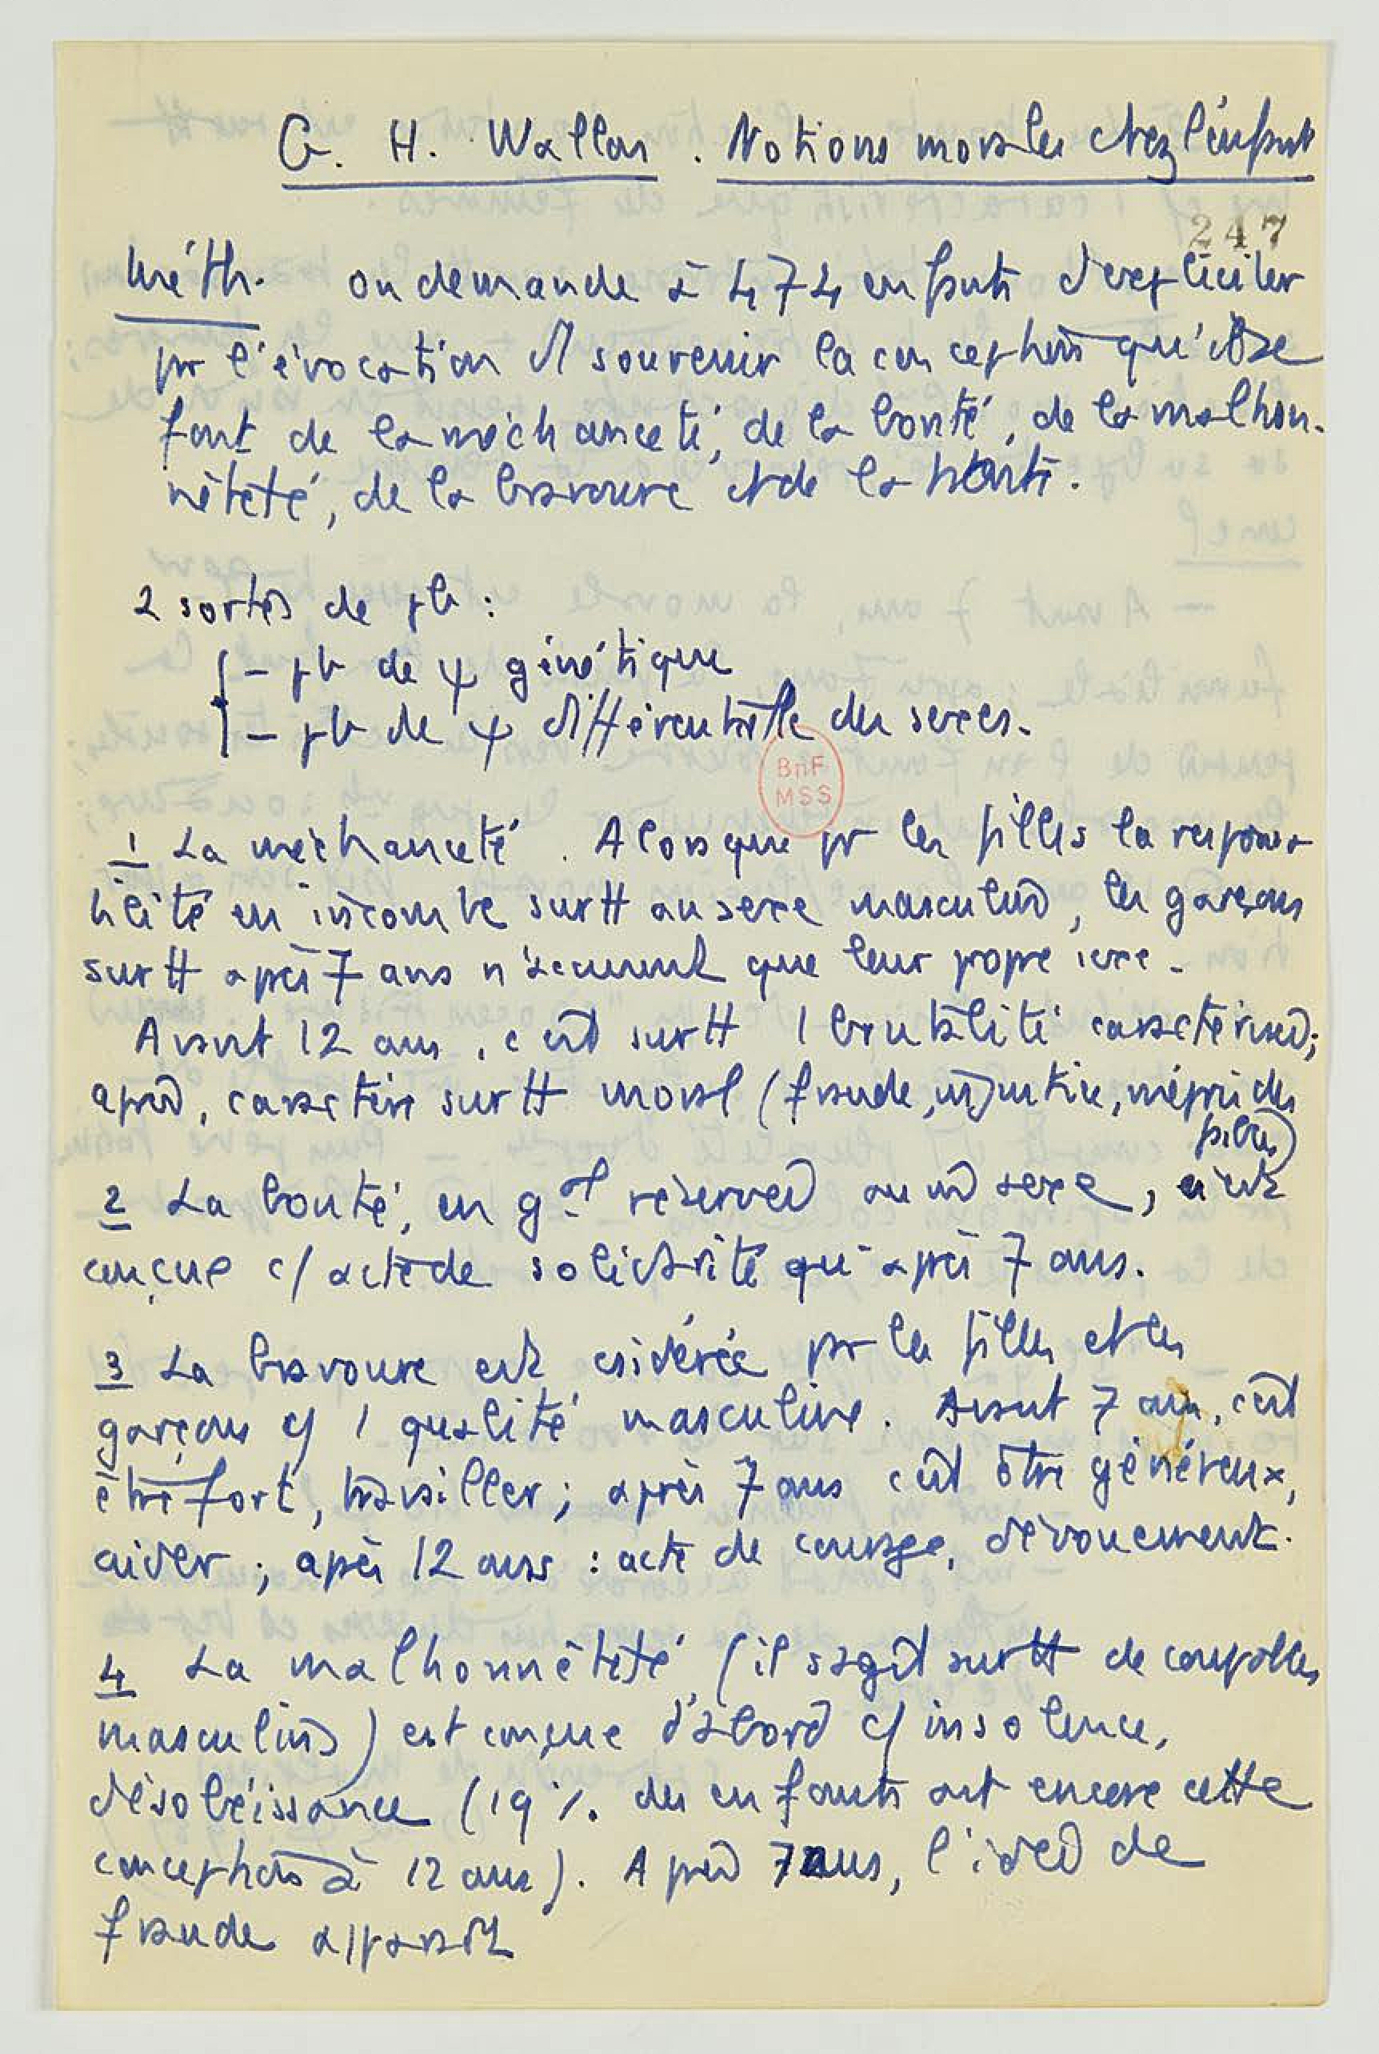 G. H. Wallon. Notions morales chez l'enfant
247
Méth. on demande à 474 enfants d'expliciter
pr l'évocation d'1 souvenir la conception qu'ils se
font de la méchanceté, de la bonté, de la malhon-
nêteté, de la bravoure et de la
2 sortes de pb :
- pb de ψ génétique
- pb de ψ différentielle des sexes.
BnF
MSS
1 La méchanceté. Alors que pr les filles la responsa
bilité en incombe surtt au sexe masculin, les garçons
surtt après 7 ans n'accusent que leur propre sexe.
Avant 12 ans, c'est surtt 1 brutalité caractérisée;
après, caractère surtt moral (fraude, injustice, mépris des
2 La bonté, en gal réservée au m sexe, n'est
conçue c/ acte de solidarité qu'après 7 ans.
3 La bravoure est csidérée pr les filles et les
garçons c/ 1 qualité masculine. Avant 7 ans, c'est
être fort, travailler; après 7 ans c'est être généreux,
aider; après 12 ans : acte de courage, dévouement.
4 La malhonnêteté (il s'agit surtt de coupables
masculins) est conçue d'abord c/ insolence,
désobéissance (19 % des enfants ont encore cette
conception à 12 ans). Après 7 ans, l'idée de
fraude apparaît